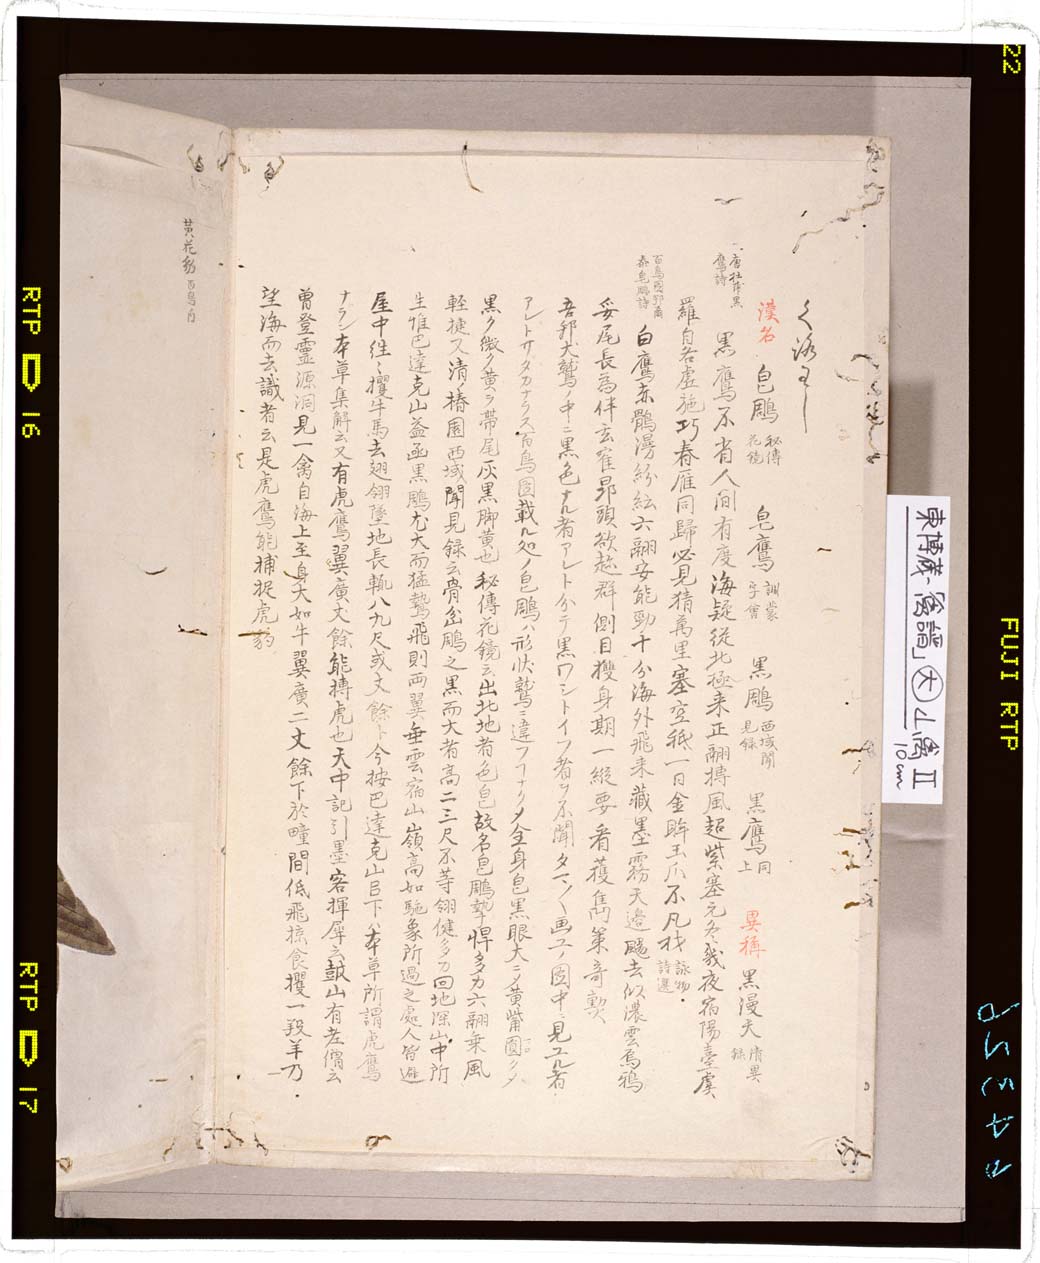 くろわし
漢名 皂鵰 秘傳花鏡 皂鷹 訓蒙字會 黒鵰 西域聞見録 黒鷹 同上 異稱 黒漫天 清異録
一 唐杜甫黒鷹詩
黒鷹不省人間有度海疑従北極来正翮摶風超紫塞元冬幾夜宿陽臺虞
羅自各虚施巧春雁同歸必見猜萬里寒空秪一日金眸玉爪不凡材 詠物詩選
百鳥圖郭奎皂鵰詩
白鷹赤鶻漫紛紜六翮安能勁十分海外飛来藏墨霧天邉颺去似濃雲烏鴉
妥尾長為伴玄寉昂頭欲趂群側目㩳身期一縦要看獲雋策奇勲
吾邦犬鷲ノ中ニ黒色ナル者アレト分テ黒ワシトイフ者ヲ不聞タマ〱画工ノ圖中ニ見ユル者
アレトサタカナラス百鳥圖載ル処ノ皂鵰ハ形状鷲ニ違フヿナクメ全身皂黒眼大ニメ黄觜圓クメ
黒ク微ク黄ヲ帯尾灰黒脚黄也秘傳花鏡云出北地者色皂故名皂鵰鷙悍多力六翮乗風
軽捷又清ノ椿園西域聞見録云骨岔鵰之黒而大者高二三尺不等翎健多力回地深山中所
生惟巴達克山益函黒鵰尤大而猛鷙飛則両翼垂雲宿山嶺高如駞象所過之處人皆避
屋中徃〻攫牛馬去翅翎墜地長軏八九尺或丈餘ト今按巴達克山邑下ハ本草所謂虎鷹
ナラン本草集解云又有虎鷹翼廣丈餘能搏虎也天中記引墨客揮犀云皷山有老僧云
曽登靈源洞見一禽自海上至身大如牛翼廣二丈餘下於疃間低飛掠食攫一羖羊乃
望海而去識者云是虎鷹能捕捉虎豹
黄花豹 百鳥ノ内
東博蔵「禽譜」大 山禽 II
10cm
22
RTP
16
RTP
17
FUJI RTP